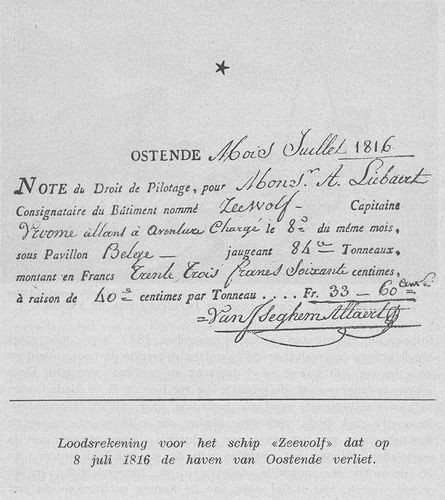 OSTENDE Mois Juillet 1816
NOTE du Droit de Pilotage, pour Monsr. A. Liebaert
Consignataire du Bâtiment nommé Zeewolf – Capitaine
Vroome allans à Aventure Chargé le 8e du même mois,
sous Pavillon Belge — jaugeant 84 Tonneaux,
montant en Francs Trente Trois francs Soixante centimes,
à raison de 40 centimes par Tonneau .... Fr. 33 – 60
Loodsrekening voor het schip «Zeewolf» dat op
8 juli 1816 de haven van Oostende verliet.